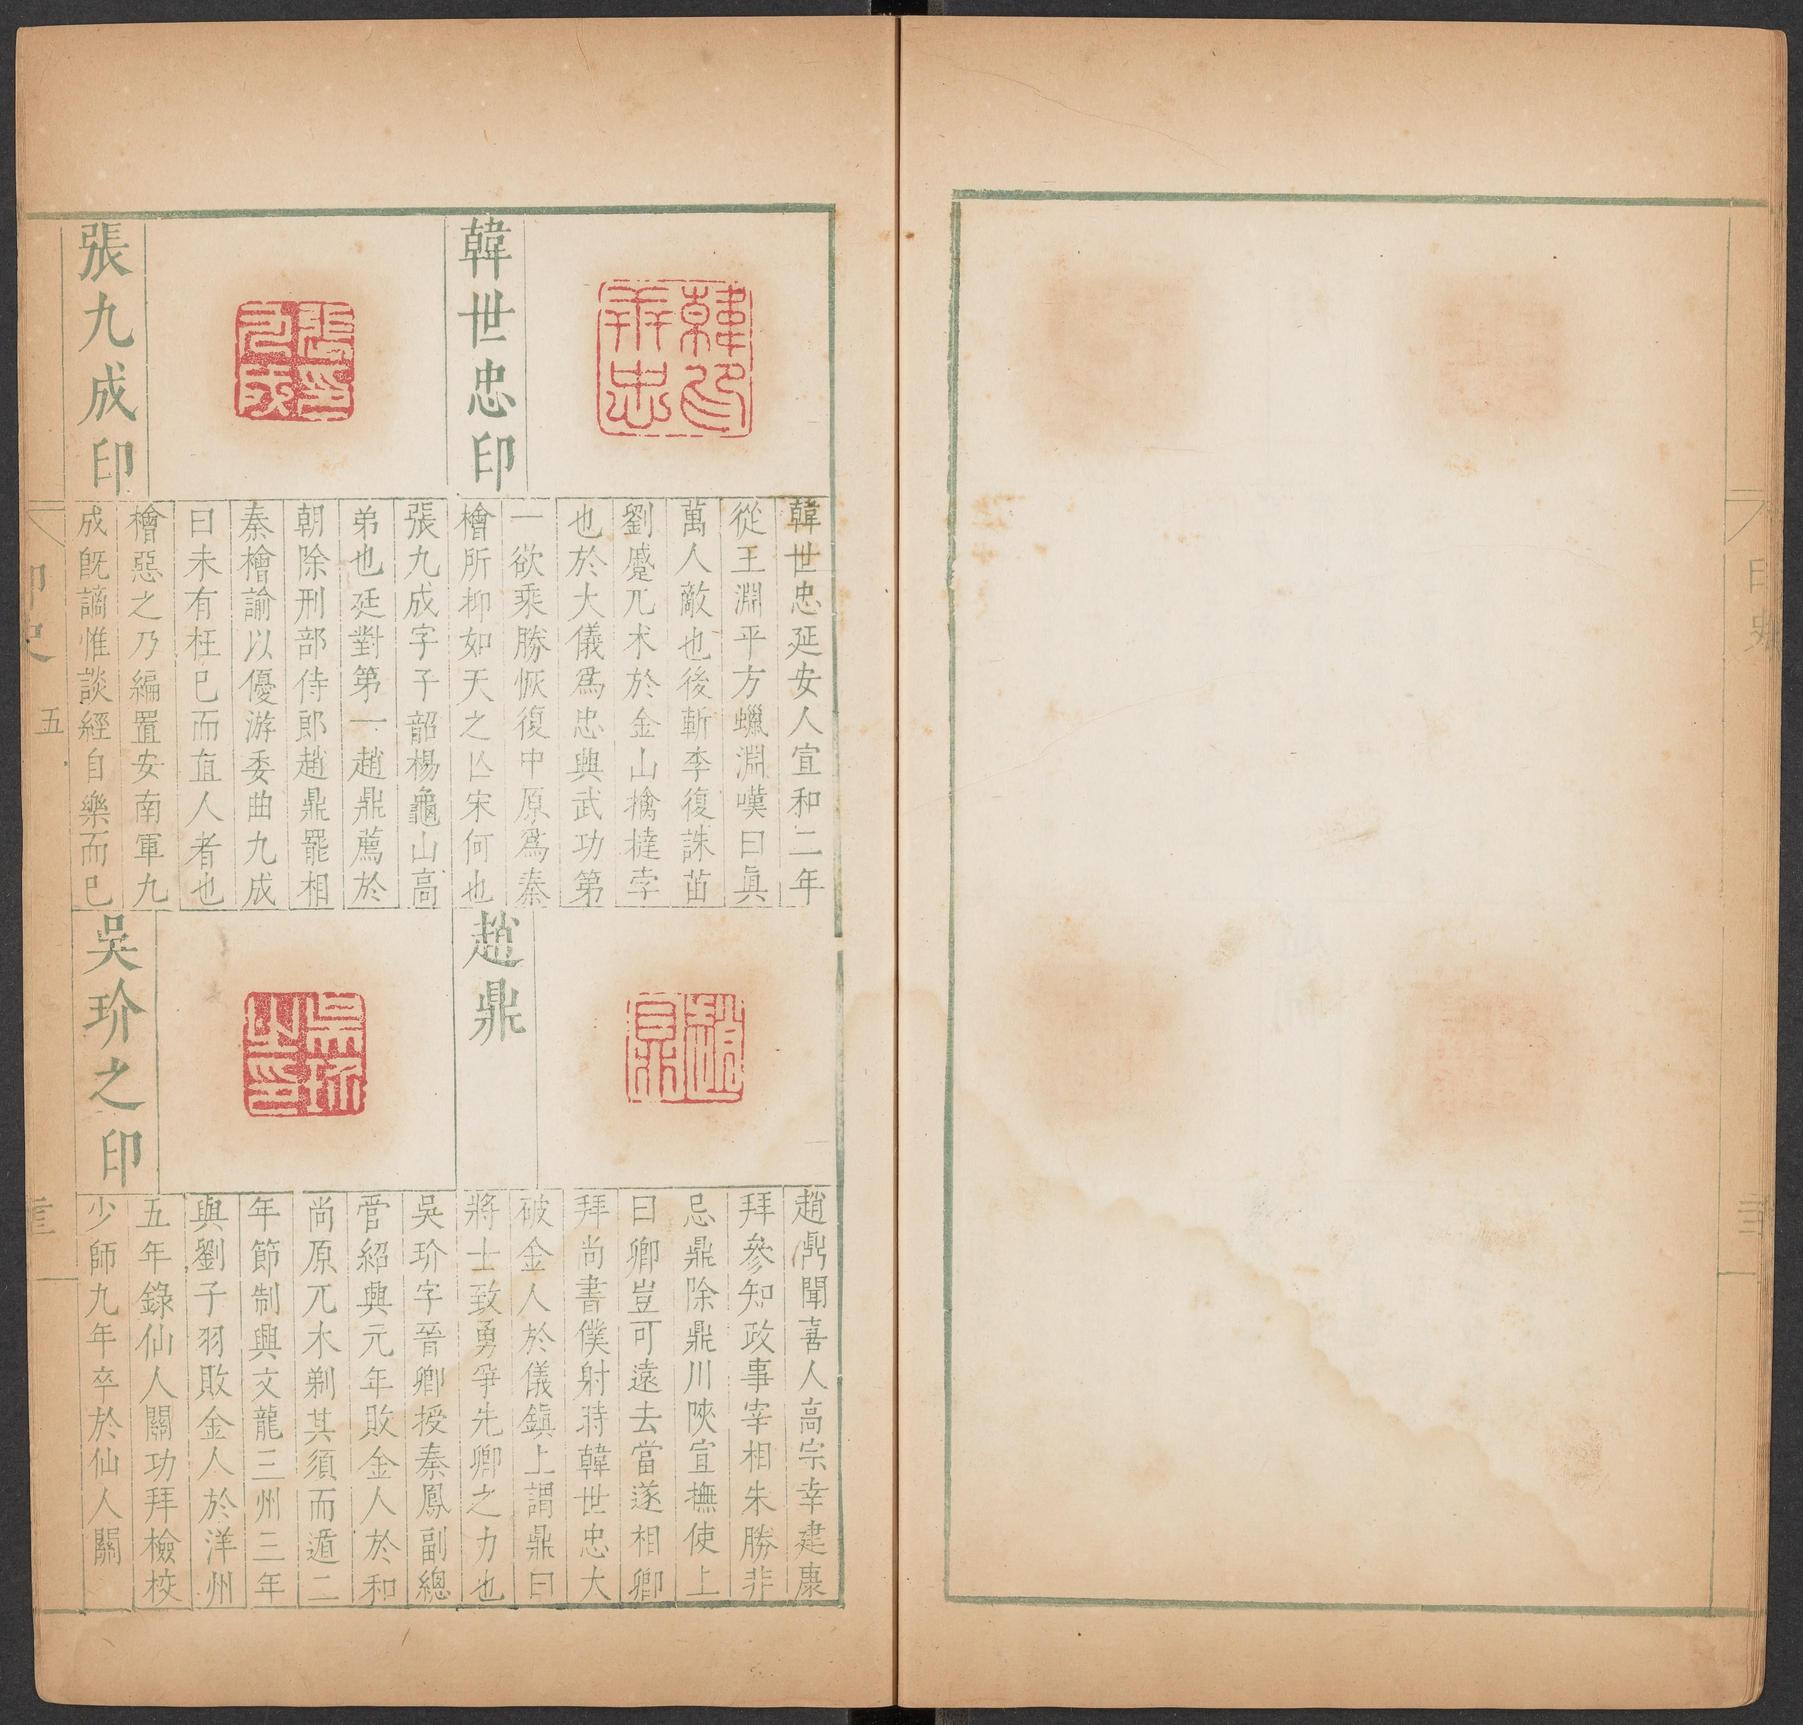 韓世忠印
韓世忠延安人宣和二年
從王淵平方蠟淵嘆曰眞
萬人敵也後斬李復誅苗
劉蹙兀朮於金山擒撻孛
也於大儀爲忠興武功第
一欲乘勝恢復中原爲秦
檜所抑如天之亾宋何也
張九成印
張九成字子韶楊龜山高
弟也廷對第一趙鼎薦於
朝除刑部侍郎趙鼎罷相
秦檜諭以優游委曲九成
曰未有枉已而直人者也
檜惡之乃編置安南軍九
成旣謫惟談經自樂而已
趙鼎
趙鼎聞喜人高宗幸建康
拜參知政事宰相朱勝非
忌鼎除鼎川陜宣撫使上
曰卿豈可遠去當遂相卿
拜尚書僕射時韓世忠大
破金人於儀鎭上謂鼎曰
將士致勇爭先卿之力也
吳玠之印
吳玠字晉卿授秦鳳副總
管紹興元年敗金人於和
尚原兀朮剃其須而遁二
年節制興文龍三州三年
與劉子羽敗金人於洋州
五年錄仙人關功拜檢校
少師九年卒於仙人關
印史 五